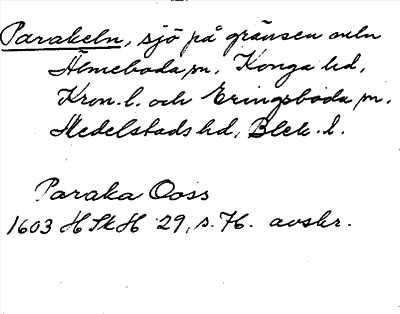 Parakeln, sjö på gränsen mln
Älmeboda sn. Konga hd,
Kron. l. och Eringsboda sn.
Medelstads hd, Blek. l.
Paraka Ooss
1603 HSkH 29, s. 76. avskr.